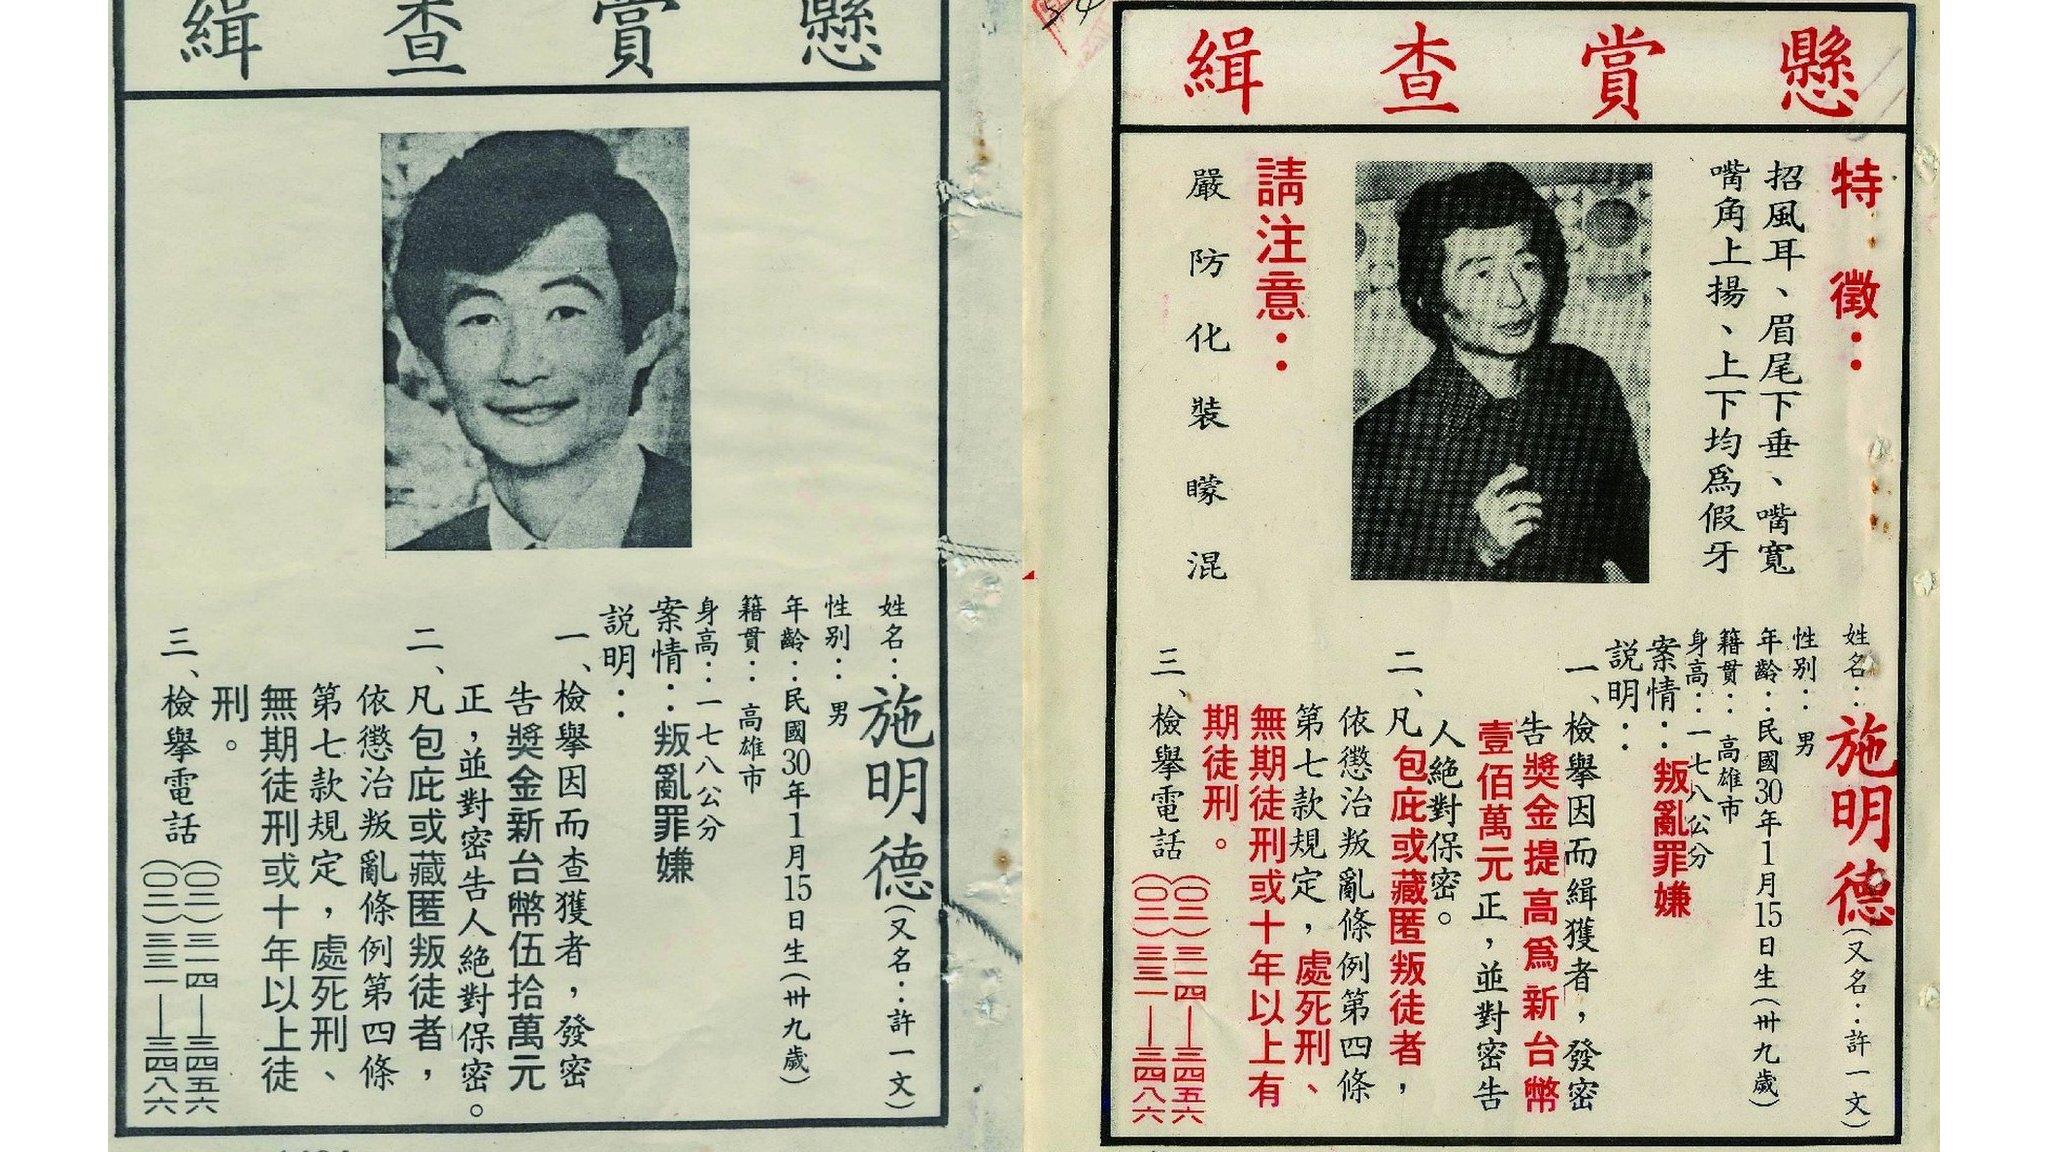 懸賞查緝
姓名：施明德（又名：許一文）
性別：男
年齡：民國30年1月15日生（卅九歲）
籍貫：高雄市
身高：一七八公分
案情：叛亂罪嫌
説明：
一、檢舉因而查獲者，發密
告獎金新台幣伍拾萬元
正，並對密告人絕對保密。
二、凡包庇或藏匿叛徒者，
依懲治叛亂條例第四條
第七款規定，處死刑、
無期徒刑或十年以上徒
刑。
三、檢舉電話
（〇二）三一四—三四五六
（〇二）三三一—三四八六
懸賞查緝
特徵：
招風耳、眉尾下垂、嘴寬
嘴角上揚、上下均爲假牙
請注意：
嚴防化裝矇混
姓名：施明德（又名：許一文）
性別：男
年齡：民國30年1月15日生（卅九歲）
籍貫：高雄市
身高：一七八公分
案情：叛亂罪嫌
説明：
一、檢舉因而緝獲者，發密
告獎金提高爲新台幣
壹佰萬元正，並對密告
人絕對保密。
二、凡包庇或藏匿叛徒者，
依懲治叛亂條例第四條
第七款規定，處死刑、
無期徒刑或十年以上有
期徒刑。
三、檢舉電話
（〇二）三一四—三四五六
（〇二）三三一—三四八六